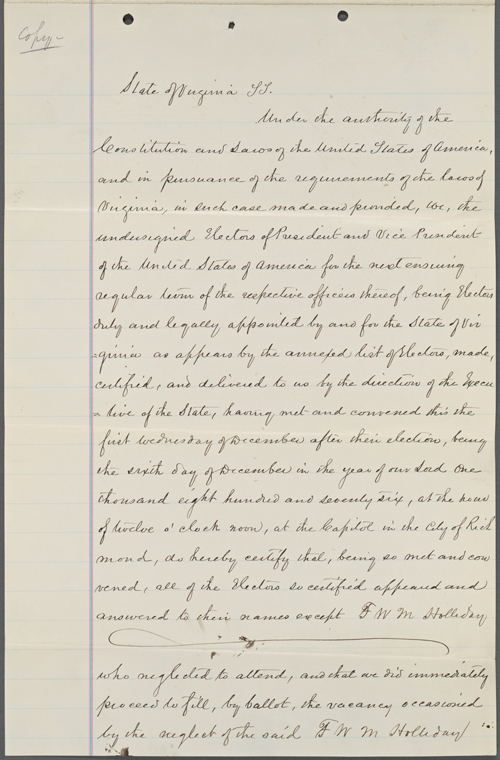 Copy-
State of Virginia SS.
Under the authority of the
Constitution and Laws of the United States of America,
and in pursuance of the requirements of the laws of
Virginia, in such case made and provided, We, the
undersigned Electors of President and Vice President
of the United States of America for the next ensuing
regular term of the respective offices thereof, being Electors
duly and legally appointed by and for the State of Vir
=ginia as appears by the annexed list of Electors, made,
certified, and delivered to us by the direction of the Execu
=tive of the State, having met and convened this the
first Wednesday of December after their election, being
the sixth day of December in the year of our Lord One
thousand eight hundred and seventy six, at the hour
of twelve o'clock noon, at the Capitol in the City of Rich
mond, do hereby certify that, being so met and con
vened, all of the Electors so certified appeared and
answered to their names except F W M Holliday
who neglected to attend, and that we did immediately
proceed to fill, by ballot, the vacancy occasioned
by the neglect of the said F W M Holliday